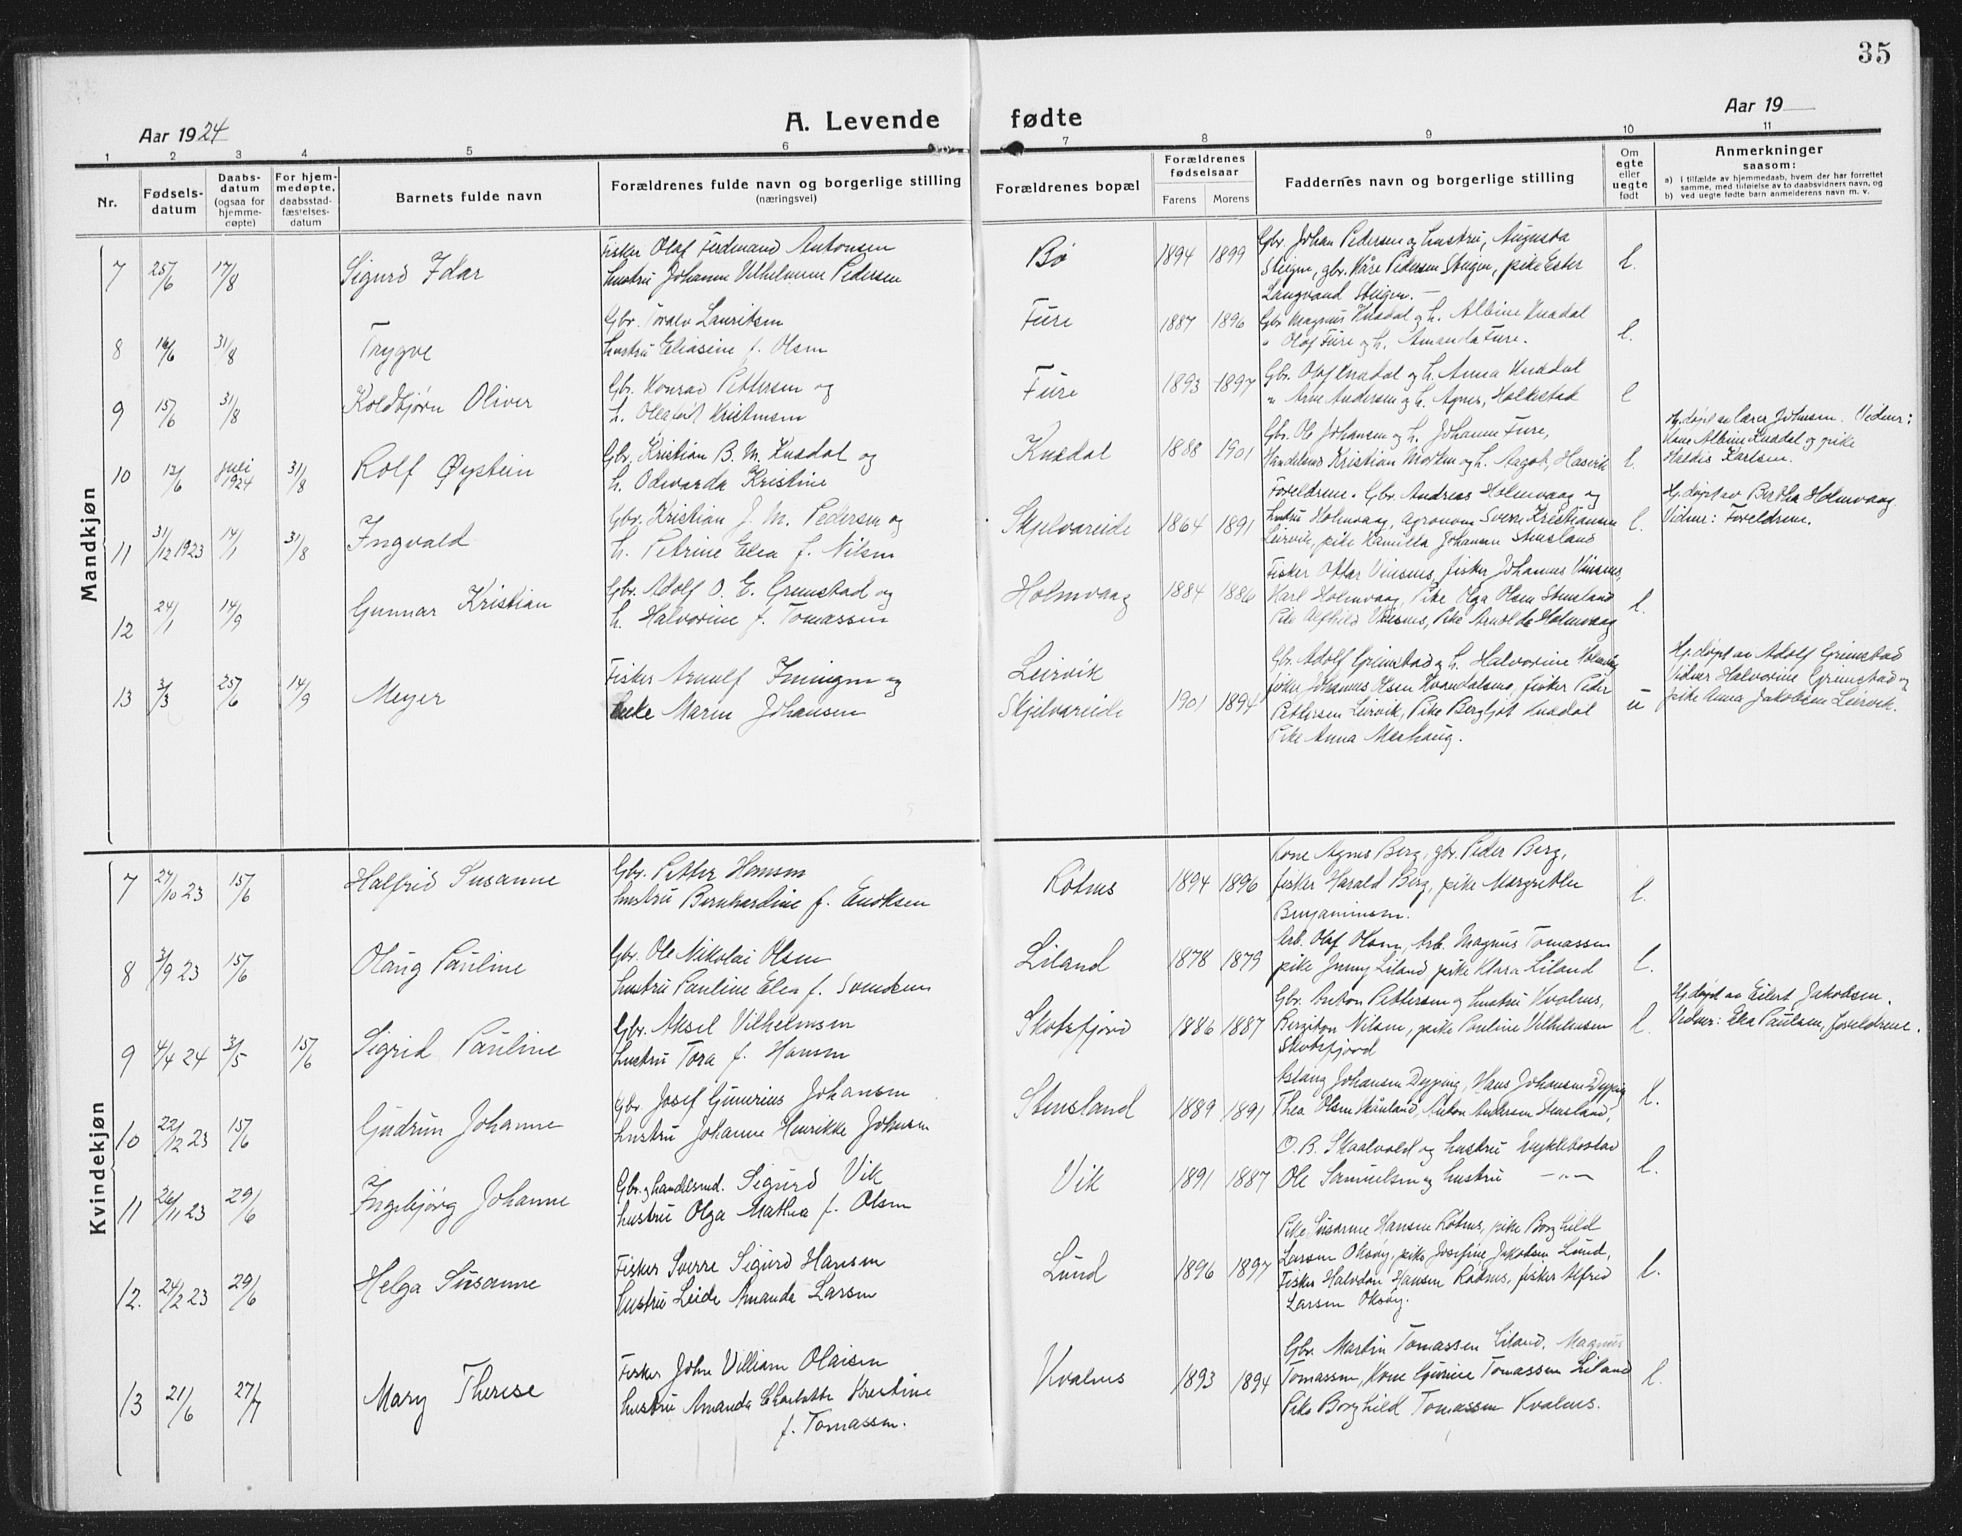 35
Aar 1924
A. Levende fødte
Aar 19
1 2 3 4 5 6 7 8 9 10 11
Nr.
Fødsels-
datum
Daabs-
datum
(ogsaa for
hjemme-
døpte)
For hjem-
medøpte,
daabsstad-
fæstelses-
datum
Barnets fulde navn
Forældrenes fulde navn og borgerlige stilling
(næringsvei)
Forældrenes bopæl
Forældrenes
fødselsaar
Farens Morens
Faddernes navn og borgerlige stilling
Om
egte
eller
uegte
født
Anmerkninger
saasom:
a) i tilfælde av hjemmedaab, hvem der har forrettet
samme, med tilføielse av to daabsvidners navn, og
b) ved uegte fødte barn anmelderens navn m. v.
Mandkjøn
7 25/6 17/8 Sigurd Idar
Fisker Olaf Ferdinand Antonsen
hustru Johanne Vilhelmine Pedersen
Bø 1894 1899
Gbr. Johan Pedersen og hustru, Augusta
Steigen, gbr. Kåre Pedersen Steigen, pike Ester
Langvand Steigen. —
l.
8 16/6 31/8 Trygve
Gbr. Toralv Lauritsen
hustru Eliasine f. Olsen
Fure 1887 1896
Gbr Magnus Knædal og h. Albine Knædal
" Olaf Fure og h. Amanda Fure.
l.
9 15/6 31/8 Koldbjørn Oliver
Gbr. Konrad Pettersen og
h. Kristensen
Fure 1893 1897
Gbr. Olaf Knædal og h. Anna Knædal
" Arne Andersen og h. Agnes, Holkestad
l
10 12/6 juli 1924 31/8 Rolf Øystein
Gbr. Kristian B. M. Knædal og
h. Edvarda Kristine
Knædal 1888 1901
Gbr. Ole Johansen og h. Johanne Fure,
Kristian Morten og h. Aagot, Hasvik
l.
Hj.døpt av lærer Johnsen. Vidner:
Kone Albine Knædal og pike
Haldis Karlsen.
11 31/12 1923 14/1 31/8 Ingvald
Gbr. Kristian J. M. Pedersen og
h. Petrine Elea f. Nilsen
Skjelvareide 1864 1891
Foreldrene. Gbr. Andreas Holmvaag og
hustru Holmvaag, Agronom Sverre Kristiansen
Leirvik, pike Kamilla Johansen Stensland
l.
Hj.døpt av Bertha Holmvaag.
Vidner: Foreldrene.
12 24/1 14/9 Gunnar Kristian
Gbr. Adolf O. E. Grimstad og
h. Halvorine f. Tomassen
Holmvaag 1884 1886
Fisker Ottar Vinsnes, fisker Johannes Vinsnes,
Karl Holmvaag, Pike Olga Olsen Stensland
Pike Alfhild Vinsnes, Pike Arnolda Holmvaag
l.
13 3/3 25/6 14/9 Meyer
Fisker Arnulf Iningen og
Pike Marin Johansen
Leirvik
Skjelvareide
1901 1894
Gbr. Adolf Grimstad og h. Halvorine Holmvåg
fisker Johannes Olsen Kvandalsnes, fisker Peder
Pettersen Leirvik, Pike Bergljot Knædal
Pike Anna Merhaug.
u
Hj.døpt av Adolf Grimstad
Vidner Halvorine Grimstad og
pike Anna Jakobsen Leirvik.
Kvindekjøn
7 27/10 23 15/6 Halfrid Susanne
Gbr. Petter Hansen
hustru Bernhardine f. Enoksen
Rotnes 1894 1896
Kone Agnes Berg, gbr. Peder Berg,
fisker Harald Berg, pike Margrethe
Benjaminsen.
l.
8 3/9 23 15/6 Olaug Pauline
Gbr. Ole Nikolai Olsen
hustru Pauline Elea f. Svendsen
Liland 1878 1879
Arb. Olaf Olsen, Arb. Magnus Tomassen
pike Jenny Liland pike Klara Liland
l.
9 4/4 24 3/5 15/6 Sigrid Pauline
Gbr. Aksel Vilhelmsen
hustru Tora f. Hansen
Skotsfjord 1886 1887
Gbr. Anton Pettersen og hustru Kvalnes,
Bergiton Nilsen, pike Pauline Vilhelmsen
Skotsfjord
l.
Hj.døpt av Eilert Jakobsen.
Vidner: Elea Paulsen, foreldrene.
10 22/12 23 15/6 Gudrun Johanne
Gbr Josef Gunerius Johansen
hustru Johanne Henrikke Johnsen
Stensland 1889 1891
Aslaug Johansen Dypping, Hans Johansen Dypping
Thea Olsen Skånland, Anton Andersen Stensland,
l.
11 26/11 23 29/6 Ingebjørg Johanne
Gbr. og handelsmd. Sigurd Vik
hustru Olga Mathea f. Olsen
Vik 1891 1887
O. B. Skaalvold og hustru Nyklebostad
Ole Samuelsen og hustru — " —
l.
12. 24/2 23 29/6 Helga Susanne
Fisker Sverre Sigurd Hansen
hustru Leide Amanda Larsen
Lund 1896 1897
Pike, Susanne Hansen Rotnes, pike Borghild
Larsen Oksøy, pike Josefine Jakobsen Lund,
Fisker Halvdan Hansen Rotnes, fisker Alfred
Larsen Oksøy.
l.
13 21/6 27/7 Mary Therese
Fisker John Villiam Olaisen
hustru Amanda Charlotte Kristine
f. Tomassen.
Kvalnes 1893 1894
Gbr. Martin Tomassen Liland. Magnus
Tomassen, Kone Gurine Tomassen Liland
Pike Borghild Tomassen Kvalnes.
l.